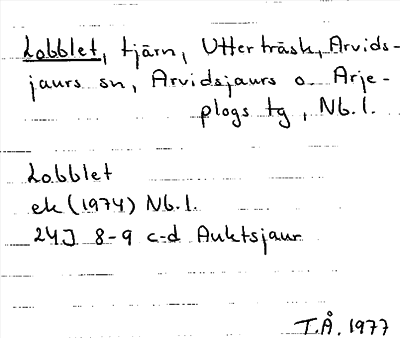 Lobblet, tjärn, Utterträsk, Arvids-
jaurs sn, Arvidsjaurs o. Arje-
plogs tg, Nb. l.
Lobblet
ek (1974) Nb. l.
24J 8-9 c-d Auktsjaur
T.Å. 1977